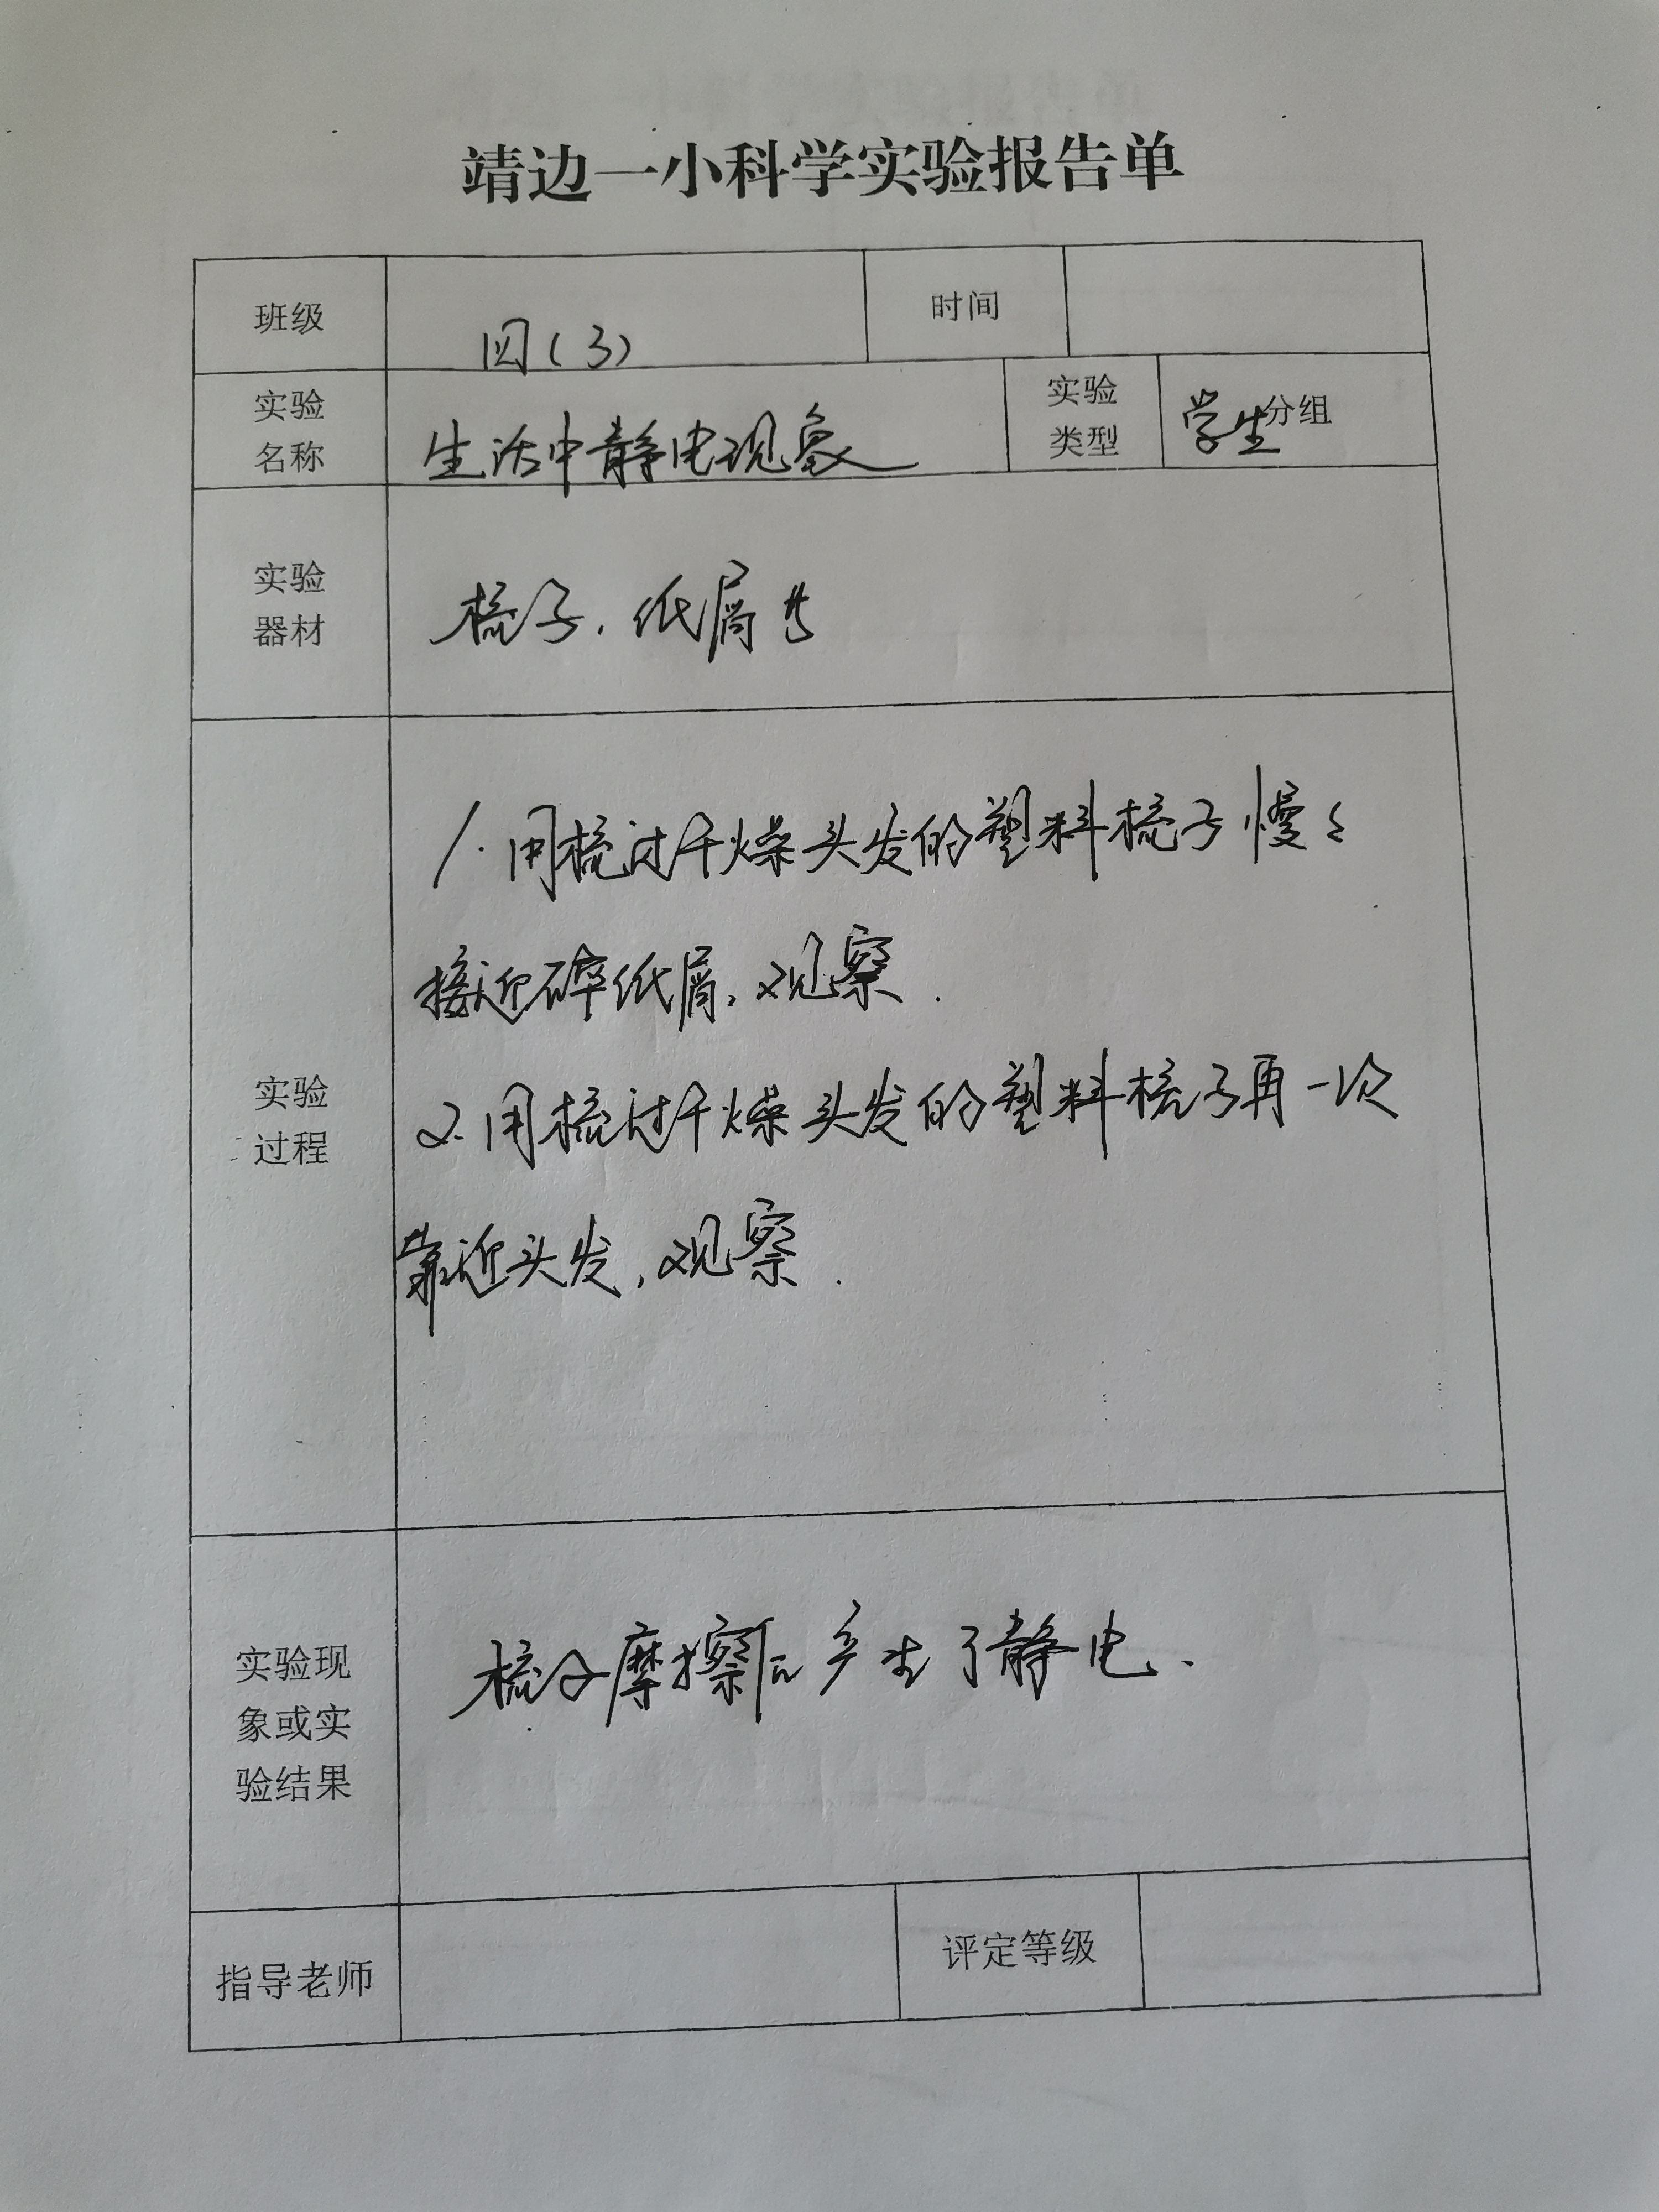 靖边一小科学实验报告单
班级 四(3) 时间
实验名称 生活中静电现象 实验类型 学生分组
实验器材 梳子、纸屑等
实验过程
1. 用梳过干燥头发的塑料梳子慢慢
接近碎纸屑,观察.
2. 用梳过干燥头发的塑料梳子再一次
靠近头发,观察.
实验现象或实验结果 梳子摩擦后产生了静电.
指导老师 评定等级